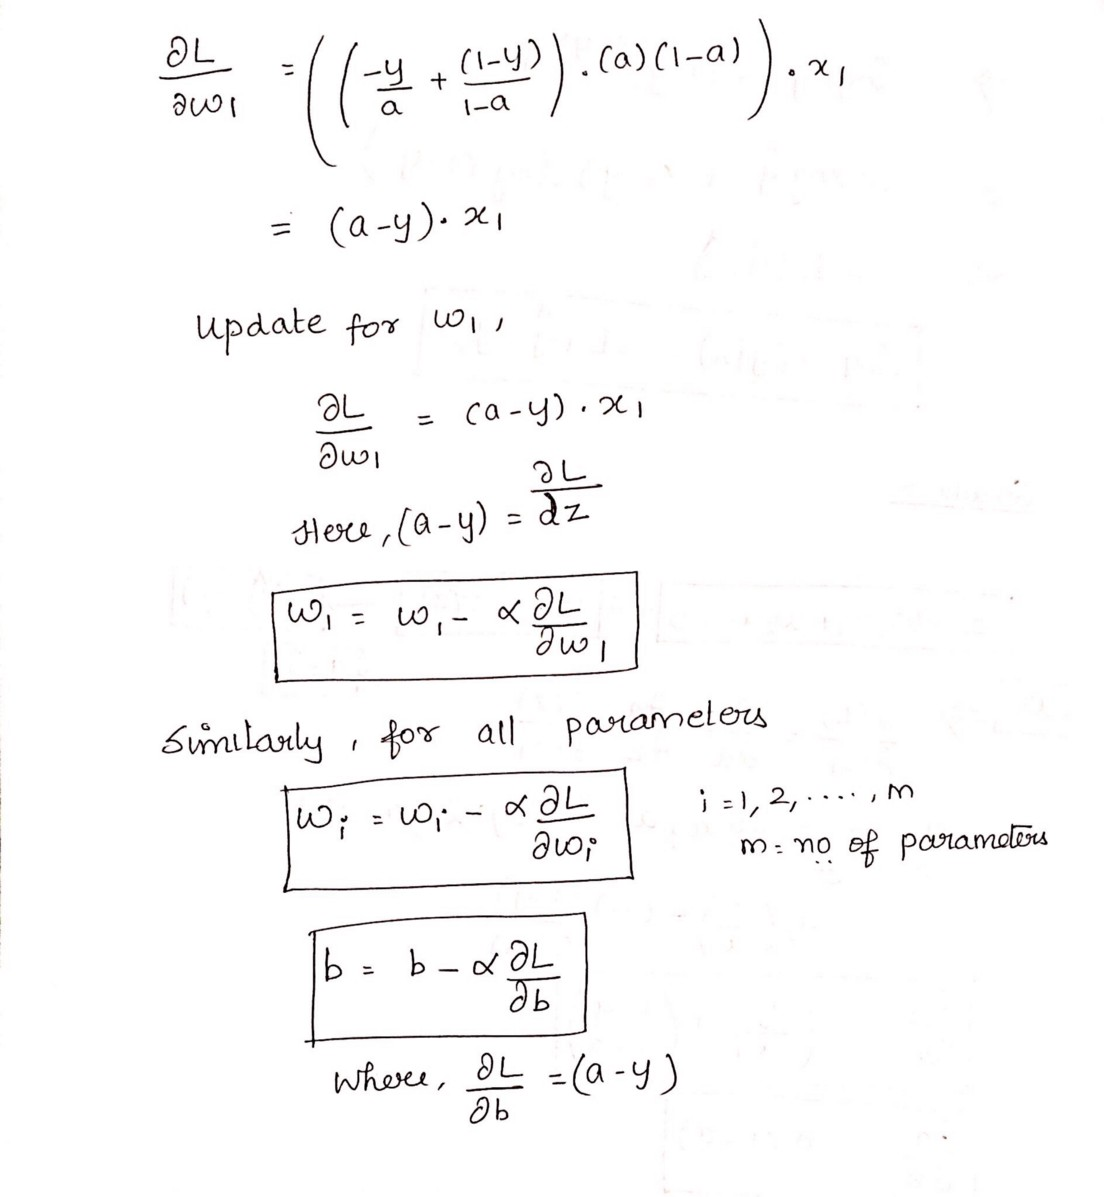 ∂L/∂w1 = ((-y/a + (1-y)/1-a) . (a)(1-a)) . x1
= (a-y) . x1
Update for w1,
∂L/∂w1 = (a-y) . x1
Here, (a-y) = ∂L/dz
w1 = w1 - α ∂L/∂w1
Similarly, for all parameters
wi = wi - α ∂L/∂wi    i = 1, 2, ...., m
m = no of parameters
b = b - α ∂L/∂b
Where, ∂L/∂b = (a-y)